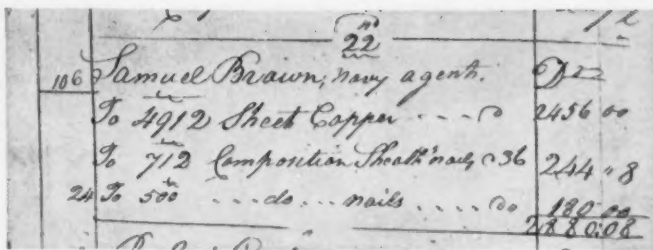 22nd
106 Samuel Brown, navy agent. Dr
To 4912 Sheet Copper - - - 2456 00
To 712 Composition Sheath'nails @ 36 244 " 8
24 To 500 ... do ... nails .... do 180 00
2880:08